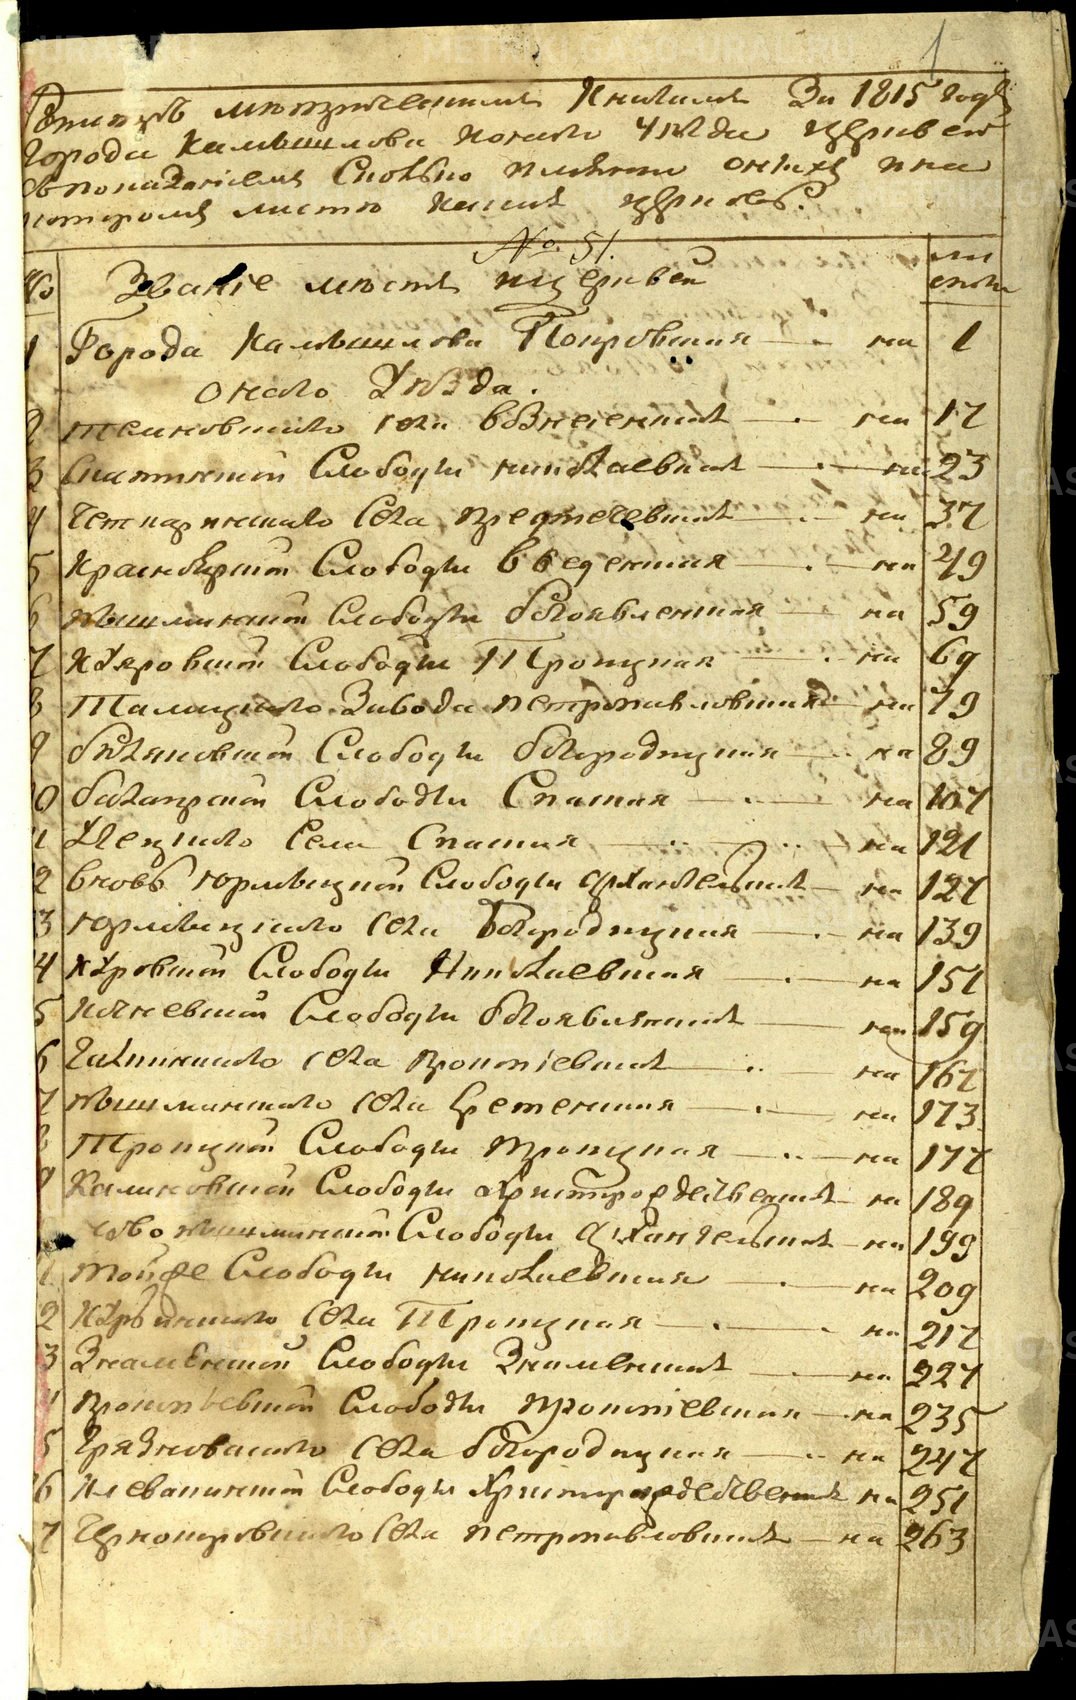 1
Реистръ метрическимъ Книгамъ За 1815 годъ
Города Камышлова ... уезда церквей
Съ показаниемъ Сколько ... и на
которомъ листе ... церковь.
№ 51.
№ Званіе местъ ицерквей ли сты
1 Города Камышлова Покровская — на 1
... Уезда.
2 ... села вознесенская — на 17
3 ... Слободы николаевская — на 23
4 Четкаринскаго села предтечевская — на 37
5 Красноярской Слободы введенская — на 49
6 пышминской Слободы богоявленская — на 59
7 куяровской Слободы Троицкая — на 69
8 Талицкаго Завода петропавловская — на 79
9 беляковской Слободы богородицкая — на 89
10 балаирской Слободы Спаская — на 107
11 Уецкаго Села Спаская — на 121
12 вновь юрмыцкой Слободы архангельская — на 127
13 юрмыцкаго села Богородицкая — на 139
14 куровской Слободы Николаевская — на 151
15 ... Слободы богоявленская — на 159
16 галкинскаго села прокопіевская — на 167
17 пышминскаго села Сретенская — на 173
18 Троицкой Слободы троицкая — на 177
19 Калиновской Слободы христорождественская — на 189
ново пышминской Слободы архангельская — на 199
1 тойже Слободы николаевская — на 209
2 курьинскаго села Троицкая — на 217
3 Знаменской Слободы Знаменская — на 227
4 прокопьевской Слободы прокопіевская — на 235
5 грязновскаго села богородицкая — на 247
26 клевакинской Слободы христорождественская на 251
7 Чернокоровскаго села петропавловская — на 263
METRIKI.GASO-URAL.RU